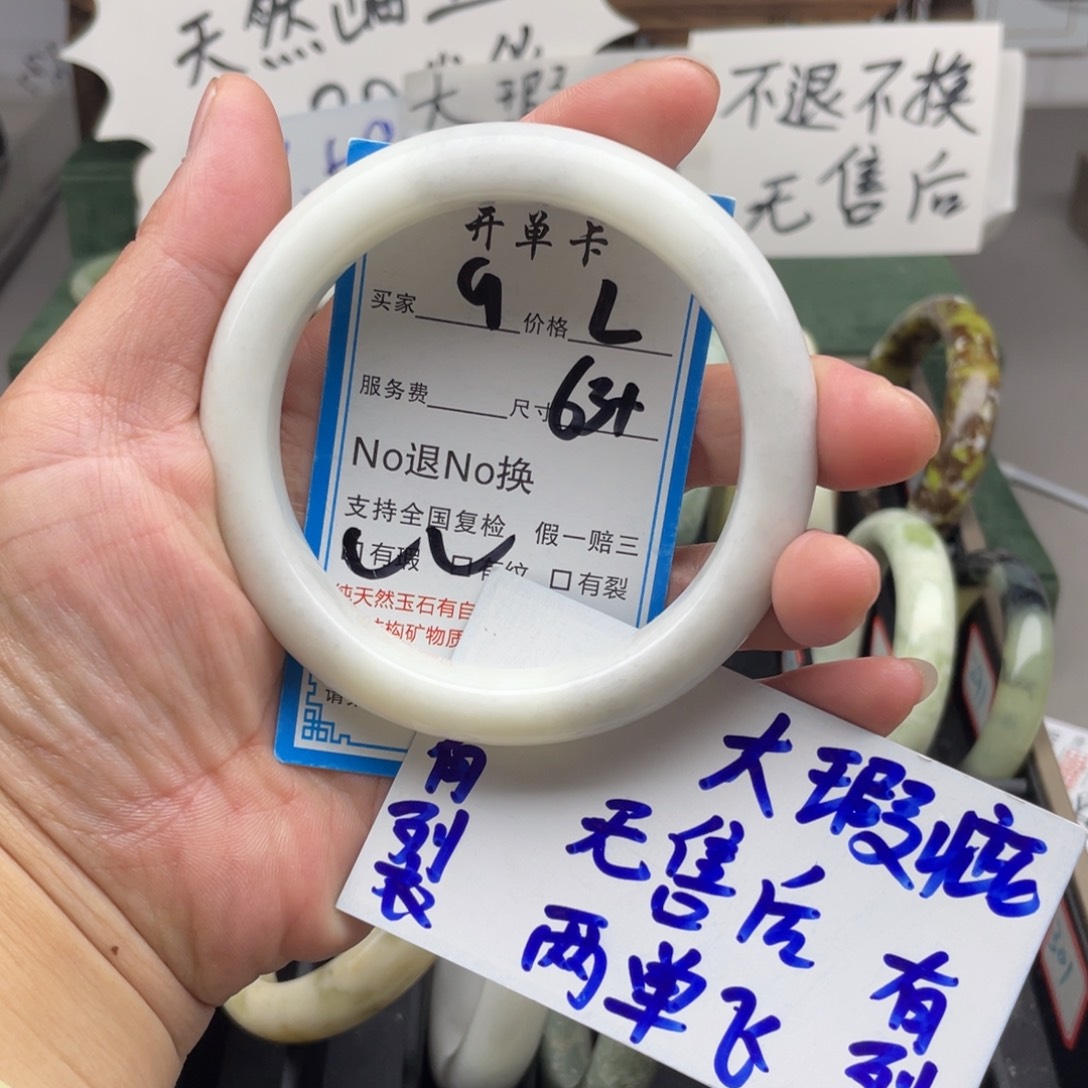 天然
大瑕
不退不换
无售后
开单卡
买家 9 价格 L
服务费 尺寸 63+
No退No换
支持全国复检 假一赔三
有瑕 有纹 有裂
纯天然玉石有自
结构矿物质
大瑕疵
无售后
两单飞
有裂
有裂